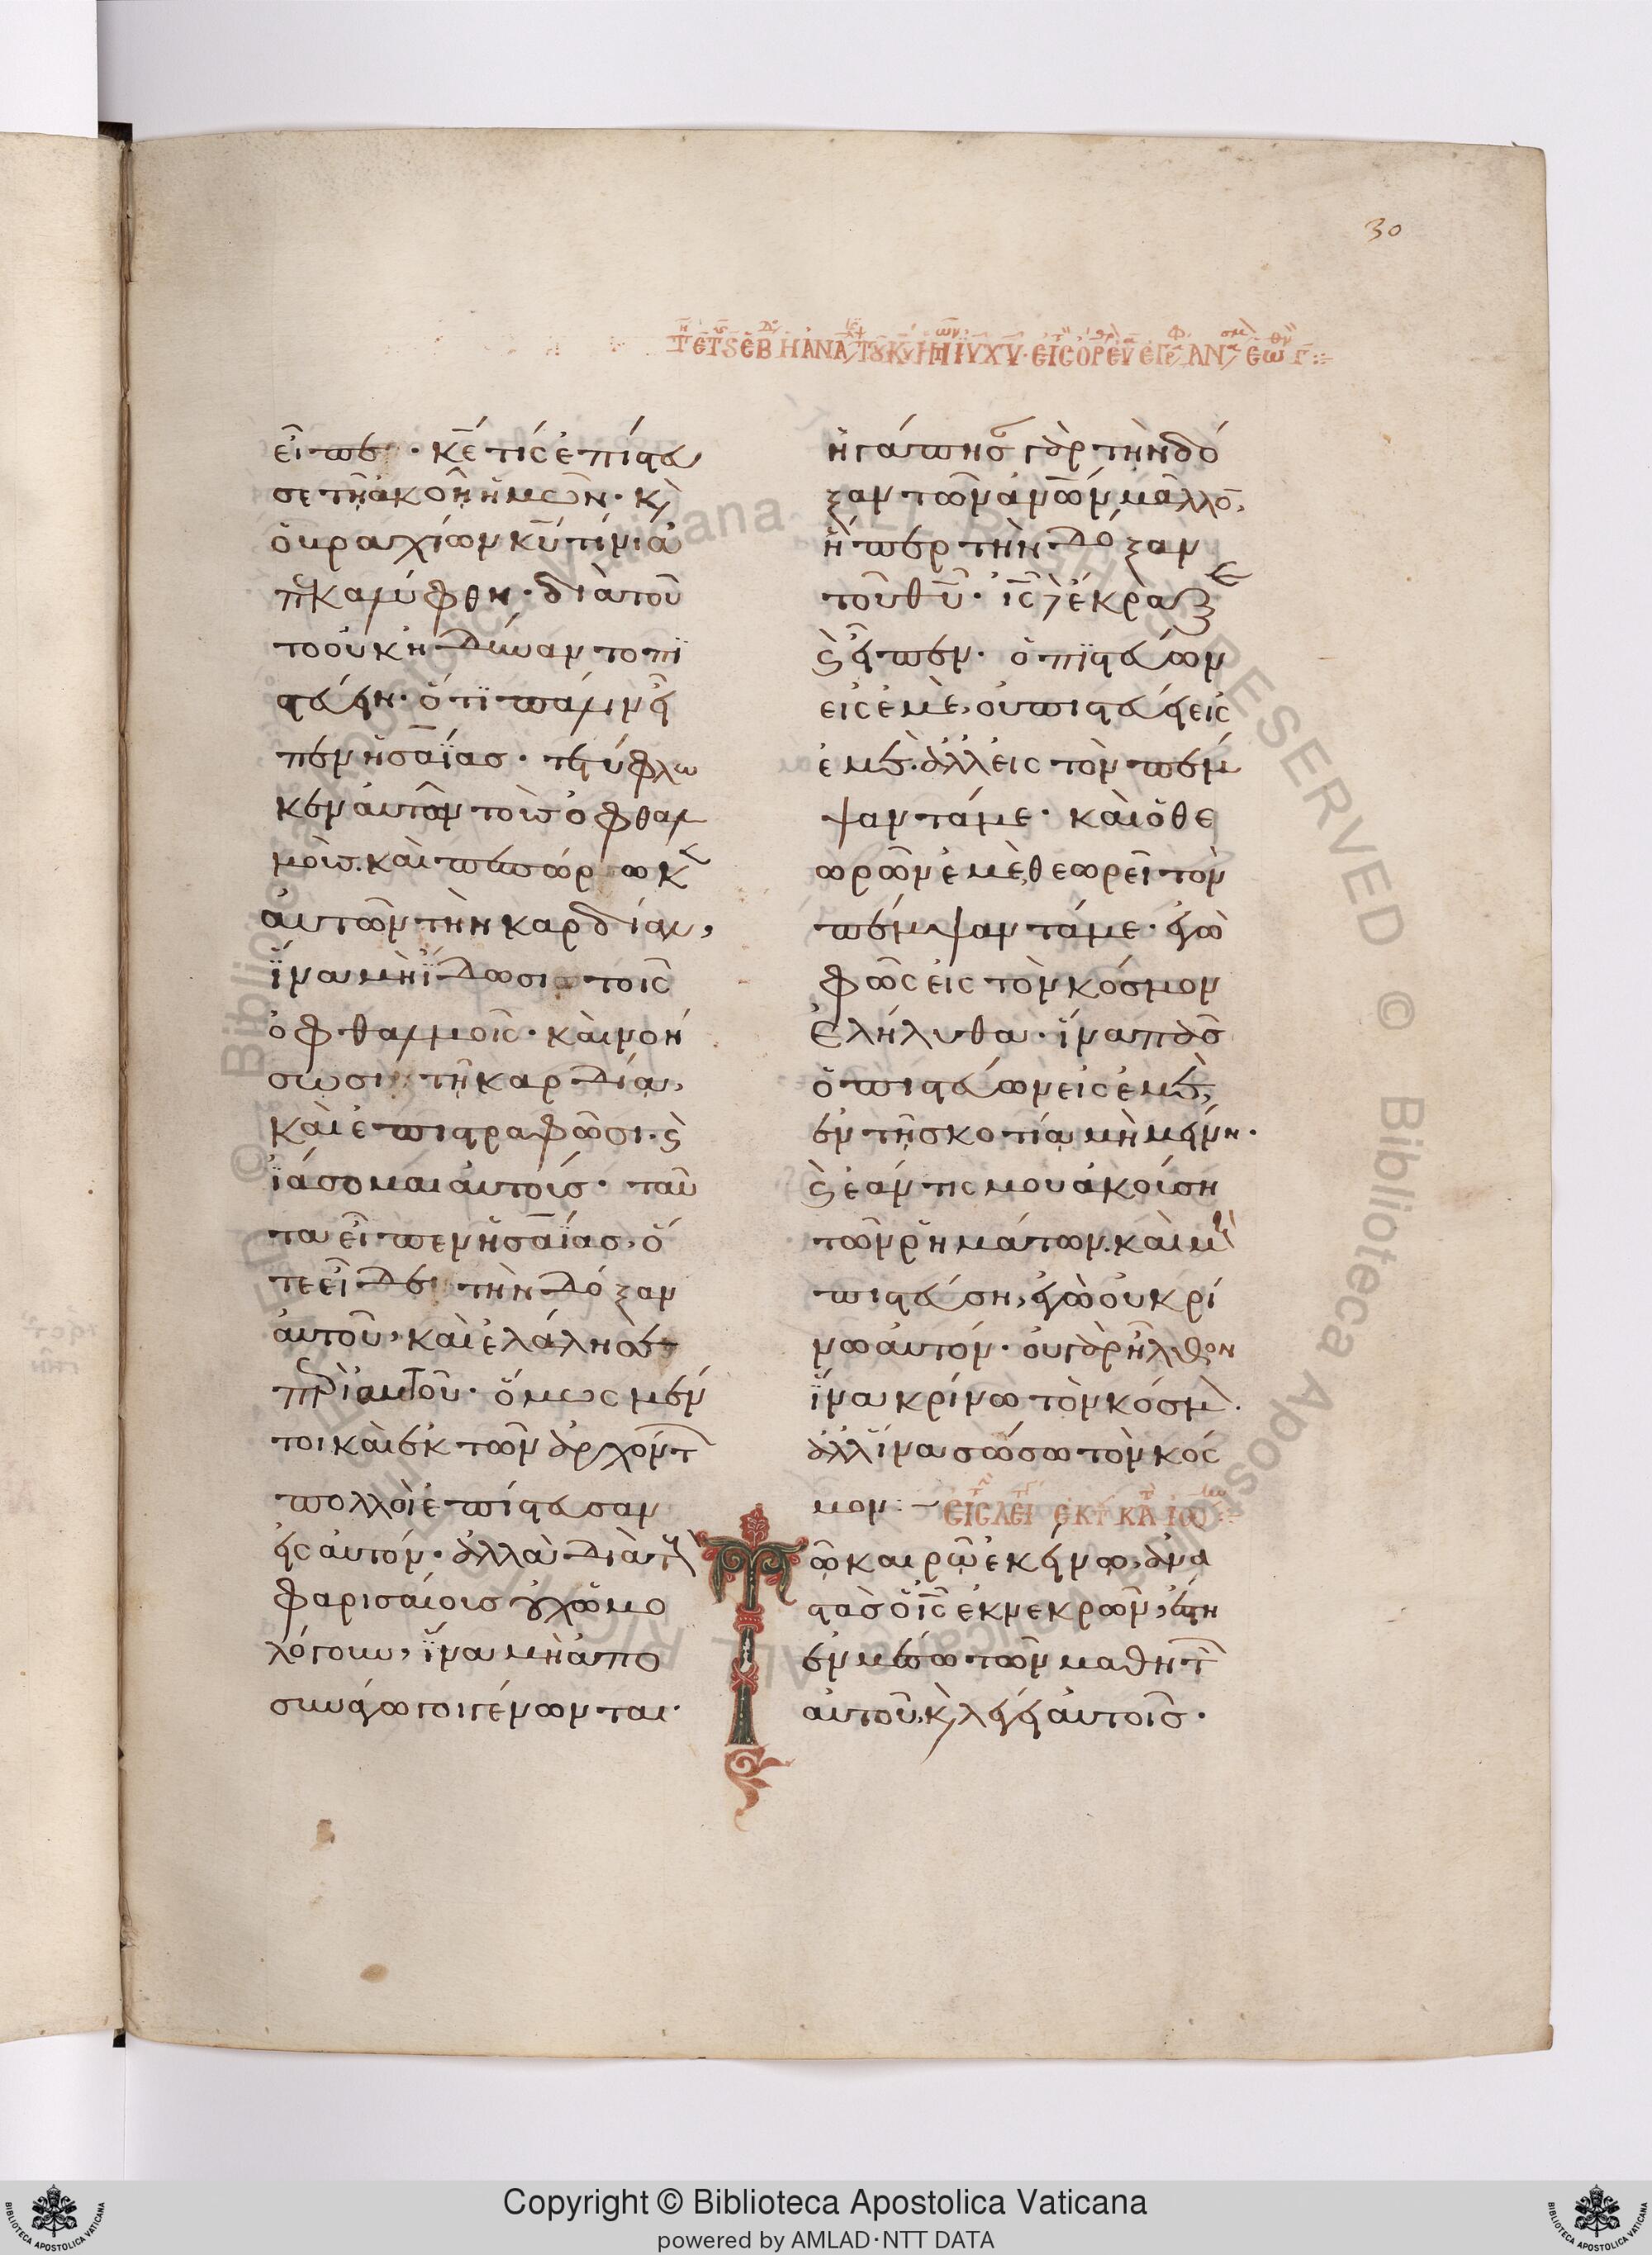 30
εἶπεν · κε τίς ἐπίστευ
σε τῇ ἀκοῇ ἡμῶν · κ
ὁ βραχίων κυ τίνι ἀ
πεκαλύφθη · διὰ τοῦ
το οὐκ ἠδύναντο πϊ
στεύειν · ὅτϊ πάλιν εἶ
πεν ἡσαΐας · τετύφλω
κεν αὐτῶν τοὺς ὀφθαλ
μοὺς. καὶ πεπώρωκ
αὐτῶν τὴν καρδίαν,
ἵνα μὴ ἴδωσι τοῖς
ὀφθαλμοῖς · καὶ νοή
σωσι τῇ καρδίᾳ,
καὶ ἐπιστραφῶσι. ϛ
ἰάσομαι αὐτούς · ταῦ
τα εἶπεν ἡσαΐας, ὅ
τε εἶδε τὴν δόξαν
αὐτοῦ, καὶ ἐλάλησε
περὶ αὐτοῦ · ὅμως μέν
τοι καὶ ἐκ τῶν ἀρχόντ
πολλοὶ ἐπίστευσαν
εἰς αὐτόν · ἀλλὰ διὰ τοὺς
φαρισαίους οὐχ ὡμο
λόγουν, ἵνα μὴ ἀπο
συνάγωγοι γένωνται ·
ἠγάπησ γὰρ τὴν δό
ξαν τῶν ανων μᾶλλο,
ἤπερ τὴν δόξαν
τοῦ θυ · ις δὲ ἔκραξε
ϛ εἶπεν · ὁ πϊστεύων
εἰς ἐμὲ, οὐ πιστεύει εἰς
ἐμέ. ἀλλ εἰς τὸν πέμ
ψαντά με · καὶ ὁ θε
ωρῶν ἐμὲ, θεωρεῖ τὸν
πέμψαντά με · ἐγὼ
φῶς εἰς τὸν κόσμον
ἐλήλυθα · ἵνα πᾶς
ὁ πιστεύων εἰς ἐμέ,
ἐν τῇ σκοτίᾳ μὴ μείνη ·
ϛ ἐάν τις μου ἀκούση
τῶν ῥημάτων. καὶ μὴ
πιστεύση, ἐγὼ οὐ κρί
νω αὐτόν · οὐ γὰρ ἦλθον
ἵνα κρίνω τὸν κόσμ ·
ἀλλ ἵνα σώσω τὸν κός
μον :
Τῶ καιρῶ ἐκείνω, ἀνα
στὰς ὁ ις ἐκ νεκρῶν, ἔστη
ἐν μέσω τῶν μαθητ
αὐτοῦ, κ λέγει αὐτοῖς ·
Copyright © Biblioteca Apostolica Vaticana
powered by AMLAD·NTT DATA